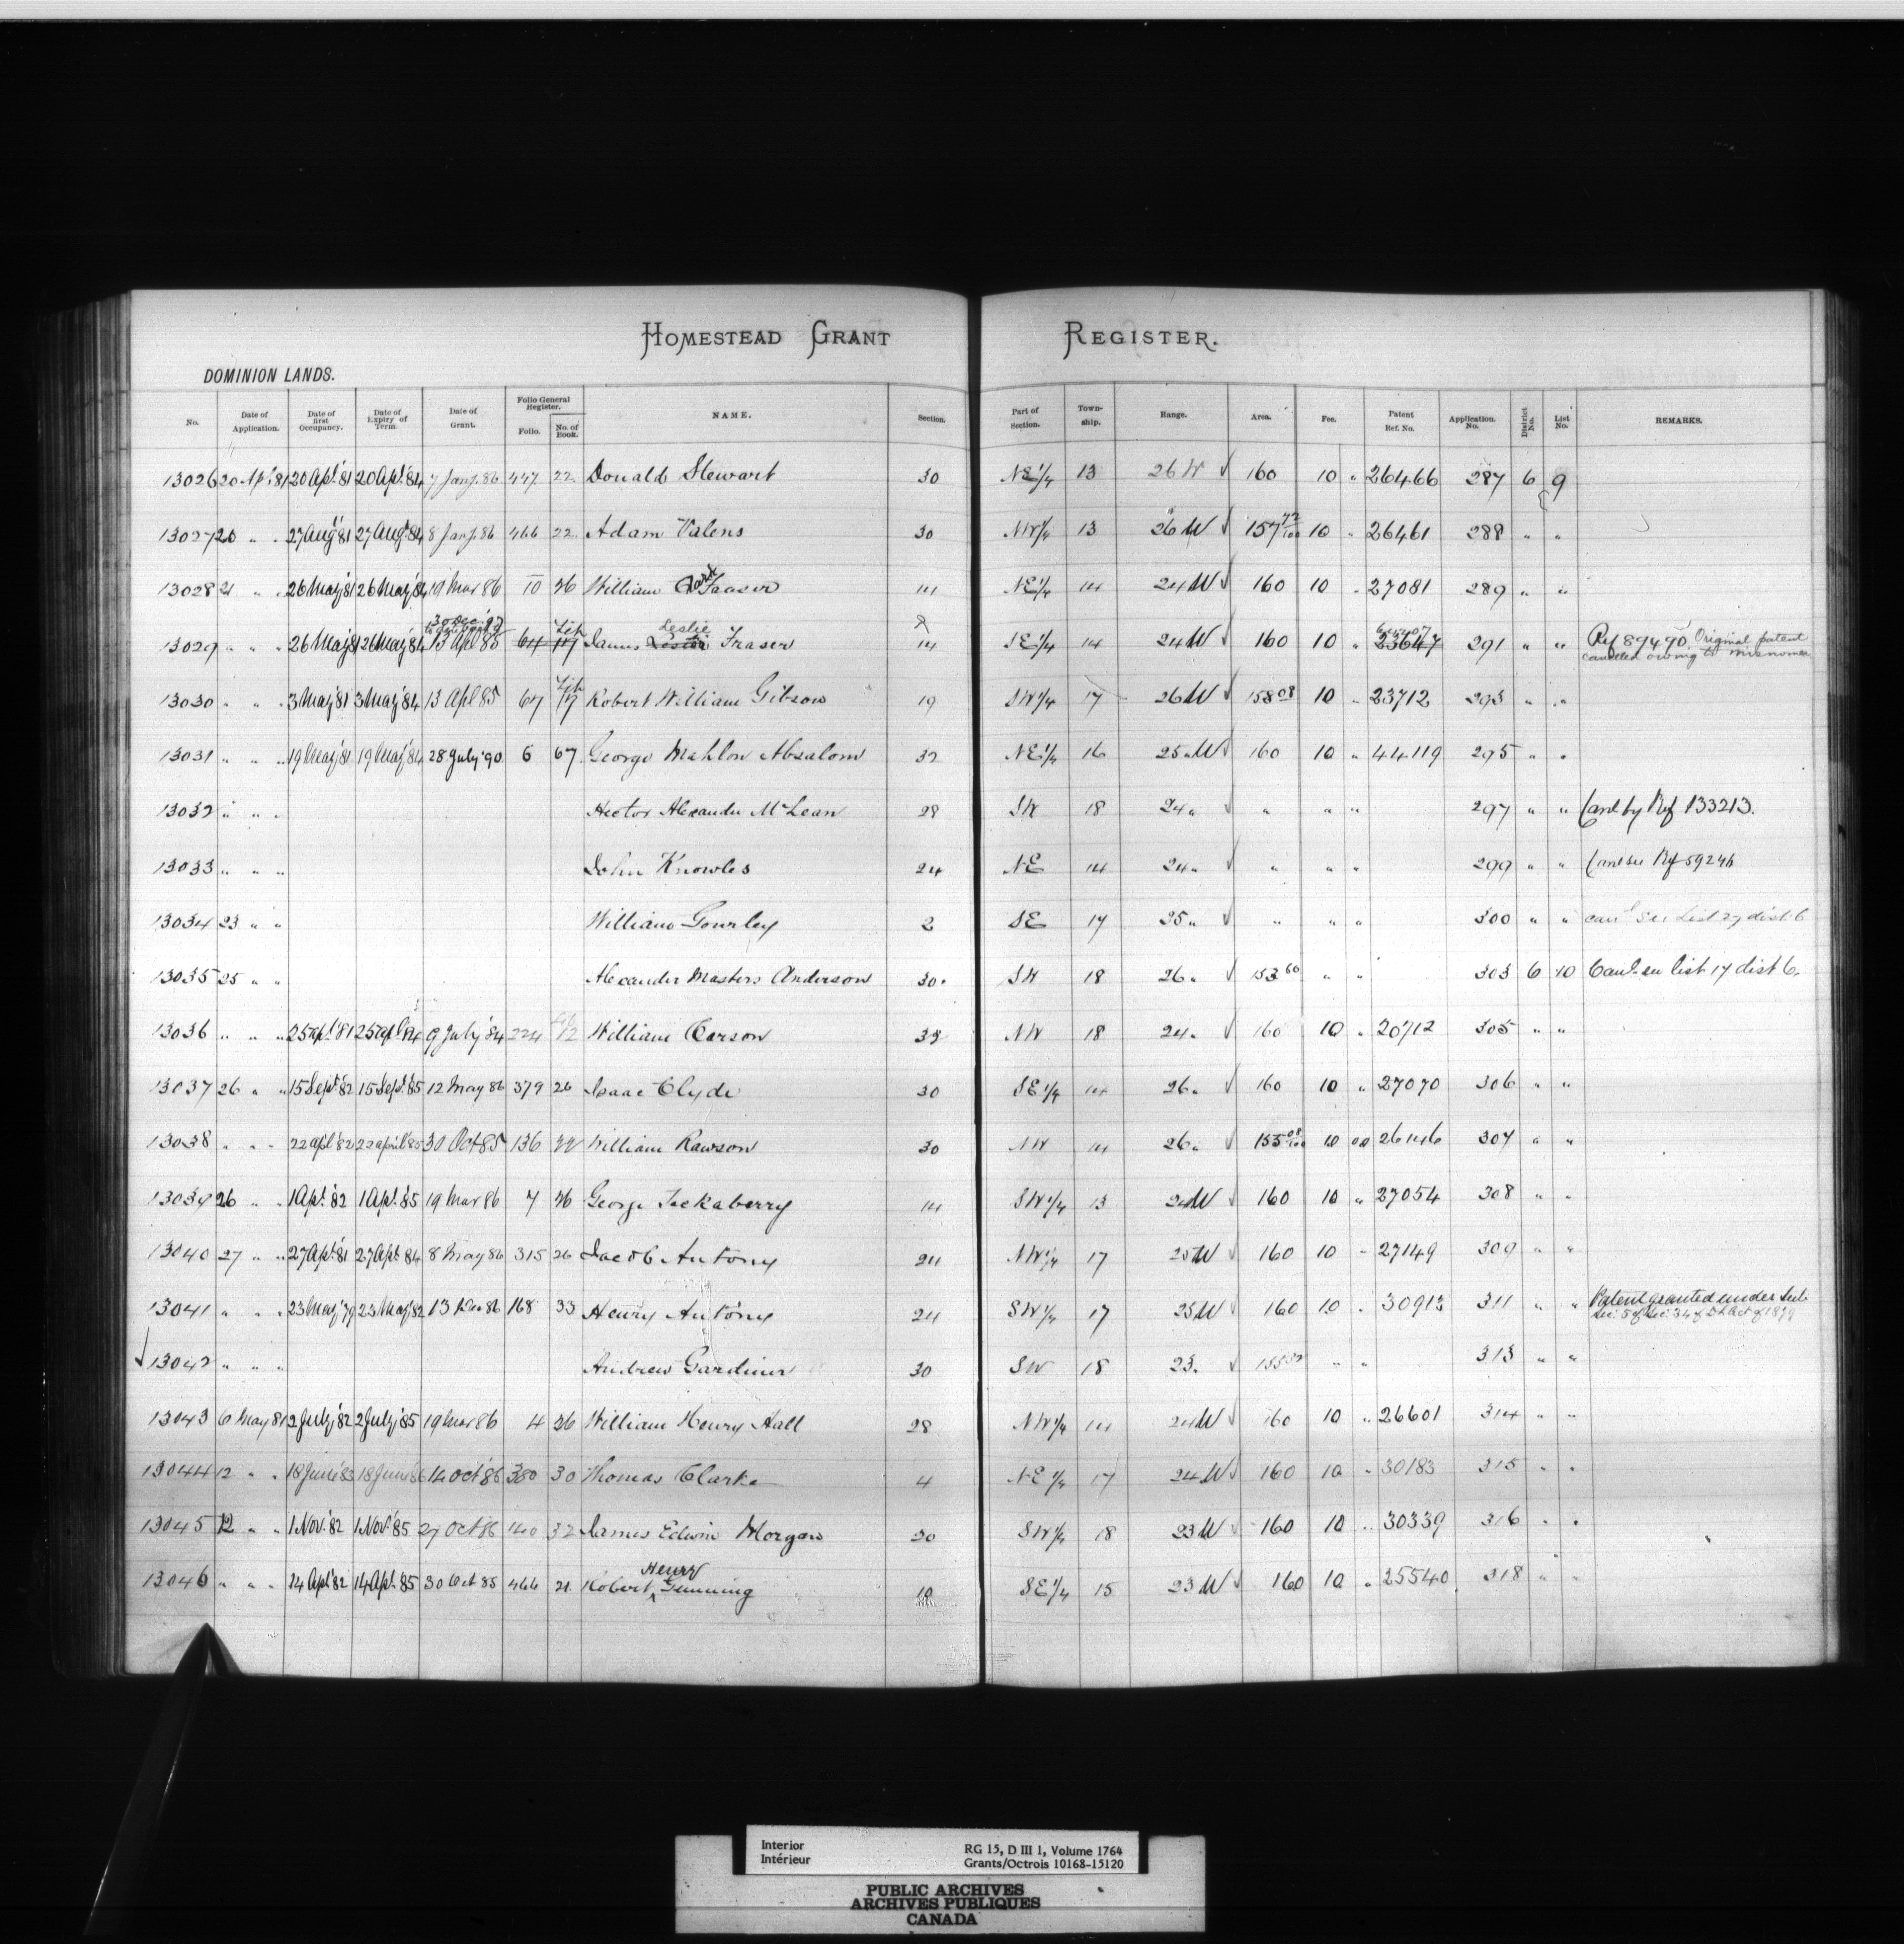 HOMESTEAD GRANT REGISTER.
DOMINION LANDS.
No. Date of Application. Date of first Occupancy. Date of Expiry of Term. Date of Grant. Folio General Register. Folio. No. of Book. NAME. Section. Part of Section. Township. Range. Area. Fee. Patent Ref. No. Application. No. District No. List No. REMARKS.
13026 20 Apl 81 20 Apl '81 20 Apl '84 7 Jany. 86 447 22 Donald Stewart 30 NE 1/4 13 26 W √ 160 10 " 26466 287 6 9
13027 20 " " 27 Aug '81 27 Aug '84 8 Jany. 86 466 22 Adam Valens 30 NW 1/4 13 26 W √ 157 72/100 10 " 26461 288 " "
13028 21 " " 26 May '81 26 May '84 19 Mar 86 10 26 William Clark Fraser 14 NE 1/4 14 24 W √ 160 10 " 27081 289 " "
13029 " " " 26 May '81 26 May '84 13 Apl 85 64 James Leslie Fraser 14 SE 1/4 14 24 W √ 160 10 " 23647 291 " " Ref 89490 Original patent
cancelled owing to misnomer
13030 " " " 3 May '81 3 May '84 13 Apl 85 67 17 Robert William Gibson 19 SW 1/4 17 26 W √ 158 08 10 " 23712 293 " "
13031 " " " 19 May '81 19 May '84 28 July '90 6 67 George Mahlon Absalom 32 NE 1/4 16 25 W √ 160 10 " 44119 295 " "
13032 " " " Hector Alexander McLean 28 SW 18 24 " √ " " " 297 " " Canl by Ref 133213.
13033 " " " John Knowles 24 NE 14 24 " √ " " " 299 " " Canl see Ref 59246
13034 23 " " William Gourley 2 SE 17 25 " √ " " " 300 " " canl see List 27 dist 6
13035 25 " " Alexander Masters Anderson 30 SW 18 26 " √ 153 60 " " 303 6 10 Canl. see list 17 dist 6.
13036 " " " 25 Apl '81 25 Apl '84 9 July '84 224 12 William Carson 32 NW 18 24 " 160 10 " 20712 305 " "
13037 26 " " 15 Sept '82 15 Sept '85 12 May 86 379 26 Isaac Clyde 30 SE 1/4 14 26 " √ 160 10 " 27070 306 " "
13038 " " " 22 Apl '82 22 April '85 30 Oct 85 136 22 William Rawson 30 NW 14 26 " √ 155 08/100 10 00 26146 307 " "
13039 26 " " 1 Apl '82 1 Apl '85 19 Mar 86 7 26 George Jackaberry 14 SW 1/4 13 24 W √ 160 10 " 27054 308 " "
13040 27 " " 27 Apl '81 27 Apl 84 8 May 86 315 26 Jacob Antony 24 NW 1/4 17 25 W √ 160 10 " 27149 309 " "
13041 " " " 23 May '79 23 May '82 13 Dec 86 168 33 Henry Antony 24 SW 1/4 17 25 W √ 160 10 " 30913 311 " " Patent granted under Sub
Sec: 5 of Sec: 34 of D L Act of 1879
√ 13042 " " " Andrew Gardiner 30 SW 18 23 " √ " " 313 " "
13043 6 May 81 2 July '82 2 July '85 19 Mar 86 4 26 William Henry Hall 28 NW 1/4 14 24 W √ 160 10 " 26601 314 " "
13044 12 " " 18 June '83 18 June '86 14 Oct '86 380 30 Thomas Clarke 4 NE 1/4 17 24 W √ 160 10 " 30183 315 " "
13045 12 " " 1 Nov. '82 1 Nov. '85 27 Oct 86 140 32 James Edwin Morgan 20 SW 1/4 18 23 W √ 160 10 " 30339 316 " "
13046 " " " 14 Apl '82 14 Apl '85 30 Oct 85 466 21 Robert Henry Gunning 10 SE 1/4 15 23 W √ 160 10 " 25540 318 " "
Interior RG 15, D III 1, Volume 1764
Intérieur Grants/Octrois 10168-15120
PUBLIC ARCHIVES
ARCHIVES PUBLIQUES
CANADA